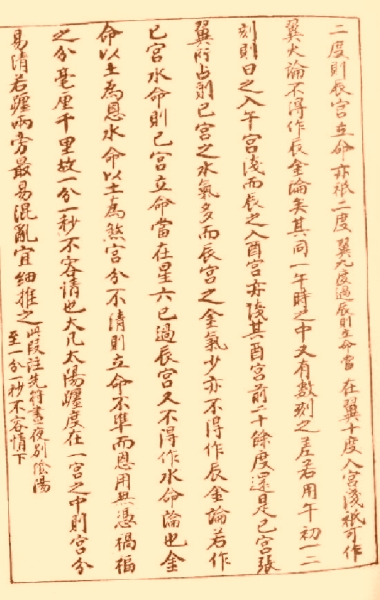 二度則辰宮立命亦祇二度翼九度過辰則立命當在翼十度入宮淺祇可作
翼火論不得作辰金論矣其同一午時之中又有數刻之差若用午初一二
刻則日之入午宮淺而辰之入酉宮亦淺其酉宮前二十餘度還是巳宮張
翼所占則巳宮之水氣多而辰宮之金氣少亦不得作辰金論若作
巳宮水命則巳宮立命當在星六已過辰宮又不得作水命論也金
命以土為恩水命以土為煞宮分不清則立命不準而恩用無憑禍福
之分毫厘千里故一分一秒不容情也大凡太陽躔度在一宮之中則宮分
易清若躔兩旁最易混亂宜細推之此段注先符晝夜別陰陽
至一分一秒不容情下